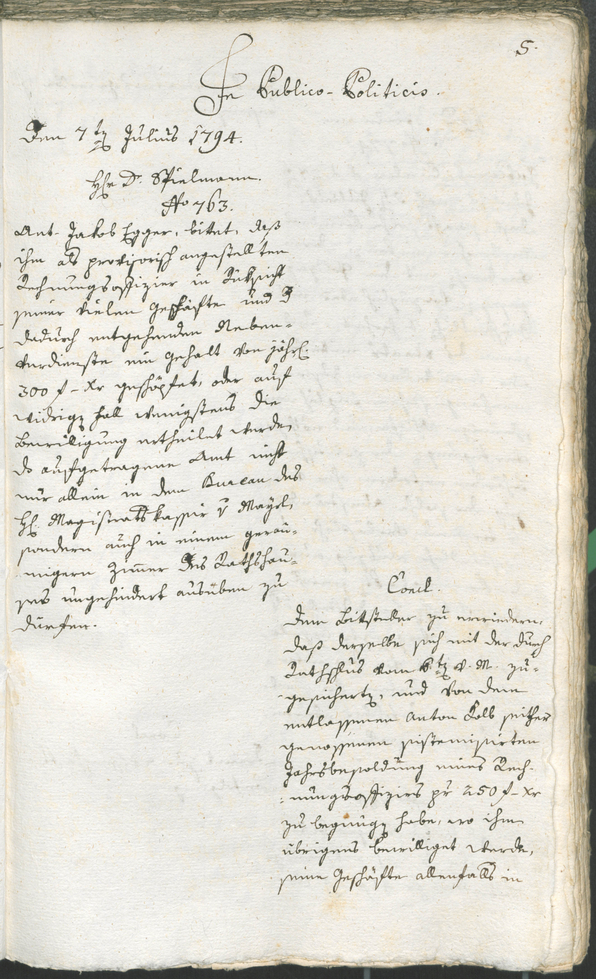 5.
In Publico-Politicis.
Den 7ten Julius 1794.
Hr. Dr. Spielmann.
No 763.
Ant. Jakob Egger, bitet, daß
ihm als provisorisch angestellten
Rechnungsoffizier in Rüksicht
seiner vielen Geschäfte und
dadurch entgehenden Neben-
verdienste ein Gehalt von jährl:
300 f - Xr geschöpfet, oder auf
widrigen Fall wenigstens die
Bewilligung ertheilet werde,
do aufgetragene Amt nicht
nur allein in dem Bureau des
H. Magistratskassir v Mayrl,
sondern auch in einem geräu-
migern Zimer des Rathshau-
ses ungehindert ausüben zu
dürfen.
Concl.
Dem Bittsteller zu erwiedern,
daß derselbe sich mit der durch
Rathschlus vom 6ten v. M. zu-
gesicherten, und von dem
entlassenen Anton Kolb seither
genossenen sistemisirten
Jahrsbesoldung eines Rech-
nungsoffiziers pr 250 f - Xr
zu begnügen habe, wo ihm
übrigens bewilliget werde,
seine Geschäfte allenfalls in